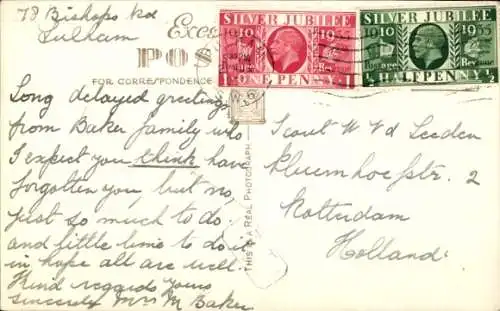 78 Bishops Rd
Fulham
POS
FOR CORRESPONDENCE
Long delayed greetings
from Baker family who
I expect you think have
forgotten you, but no,
just so much to do
and little time to do it
in hope all are well.
Kind regards yours
sincerely Mrs M Baker
THIS IS A REAL PHOTOGRAPH
SILVER JUBILEE
1910 1935
Postage Revenue
ONE PENNY 1
SILVER JUBILEE
1910 1935
Postage Revenue
½ HALFPENNY ½
Scout W Vd Leeden
Pluimhoefstr. 2
Rotterdam
Holland